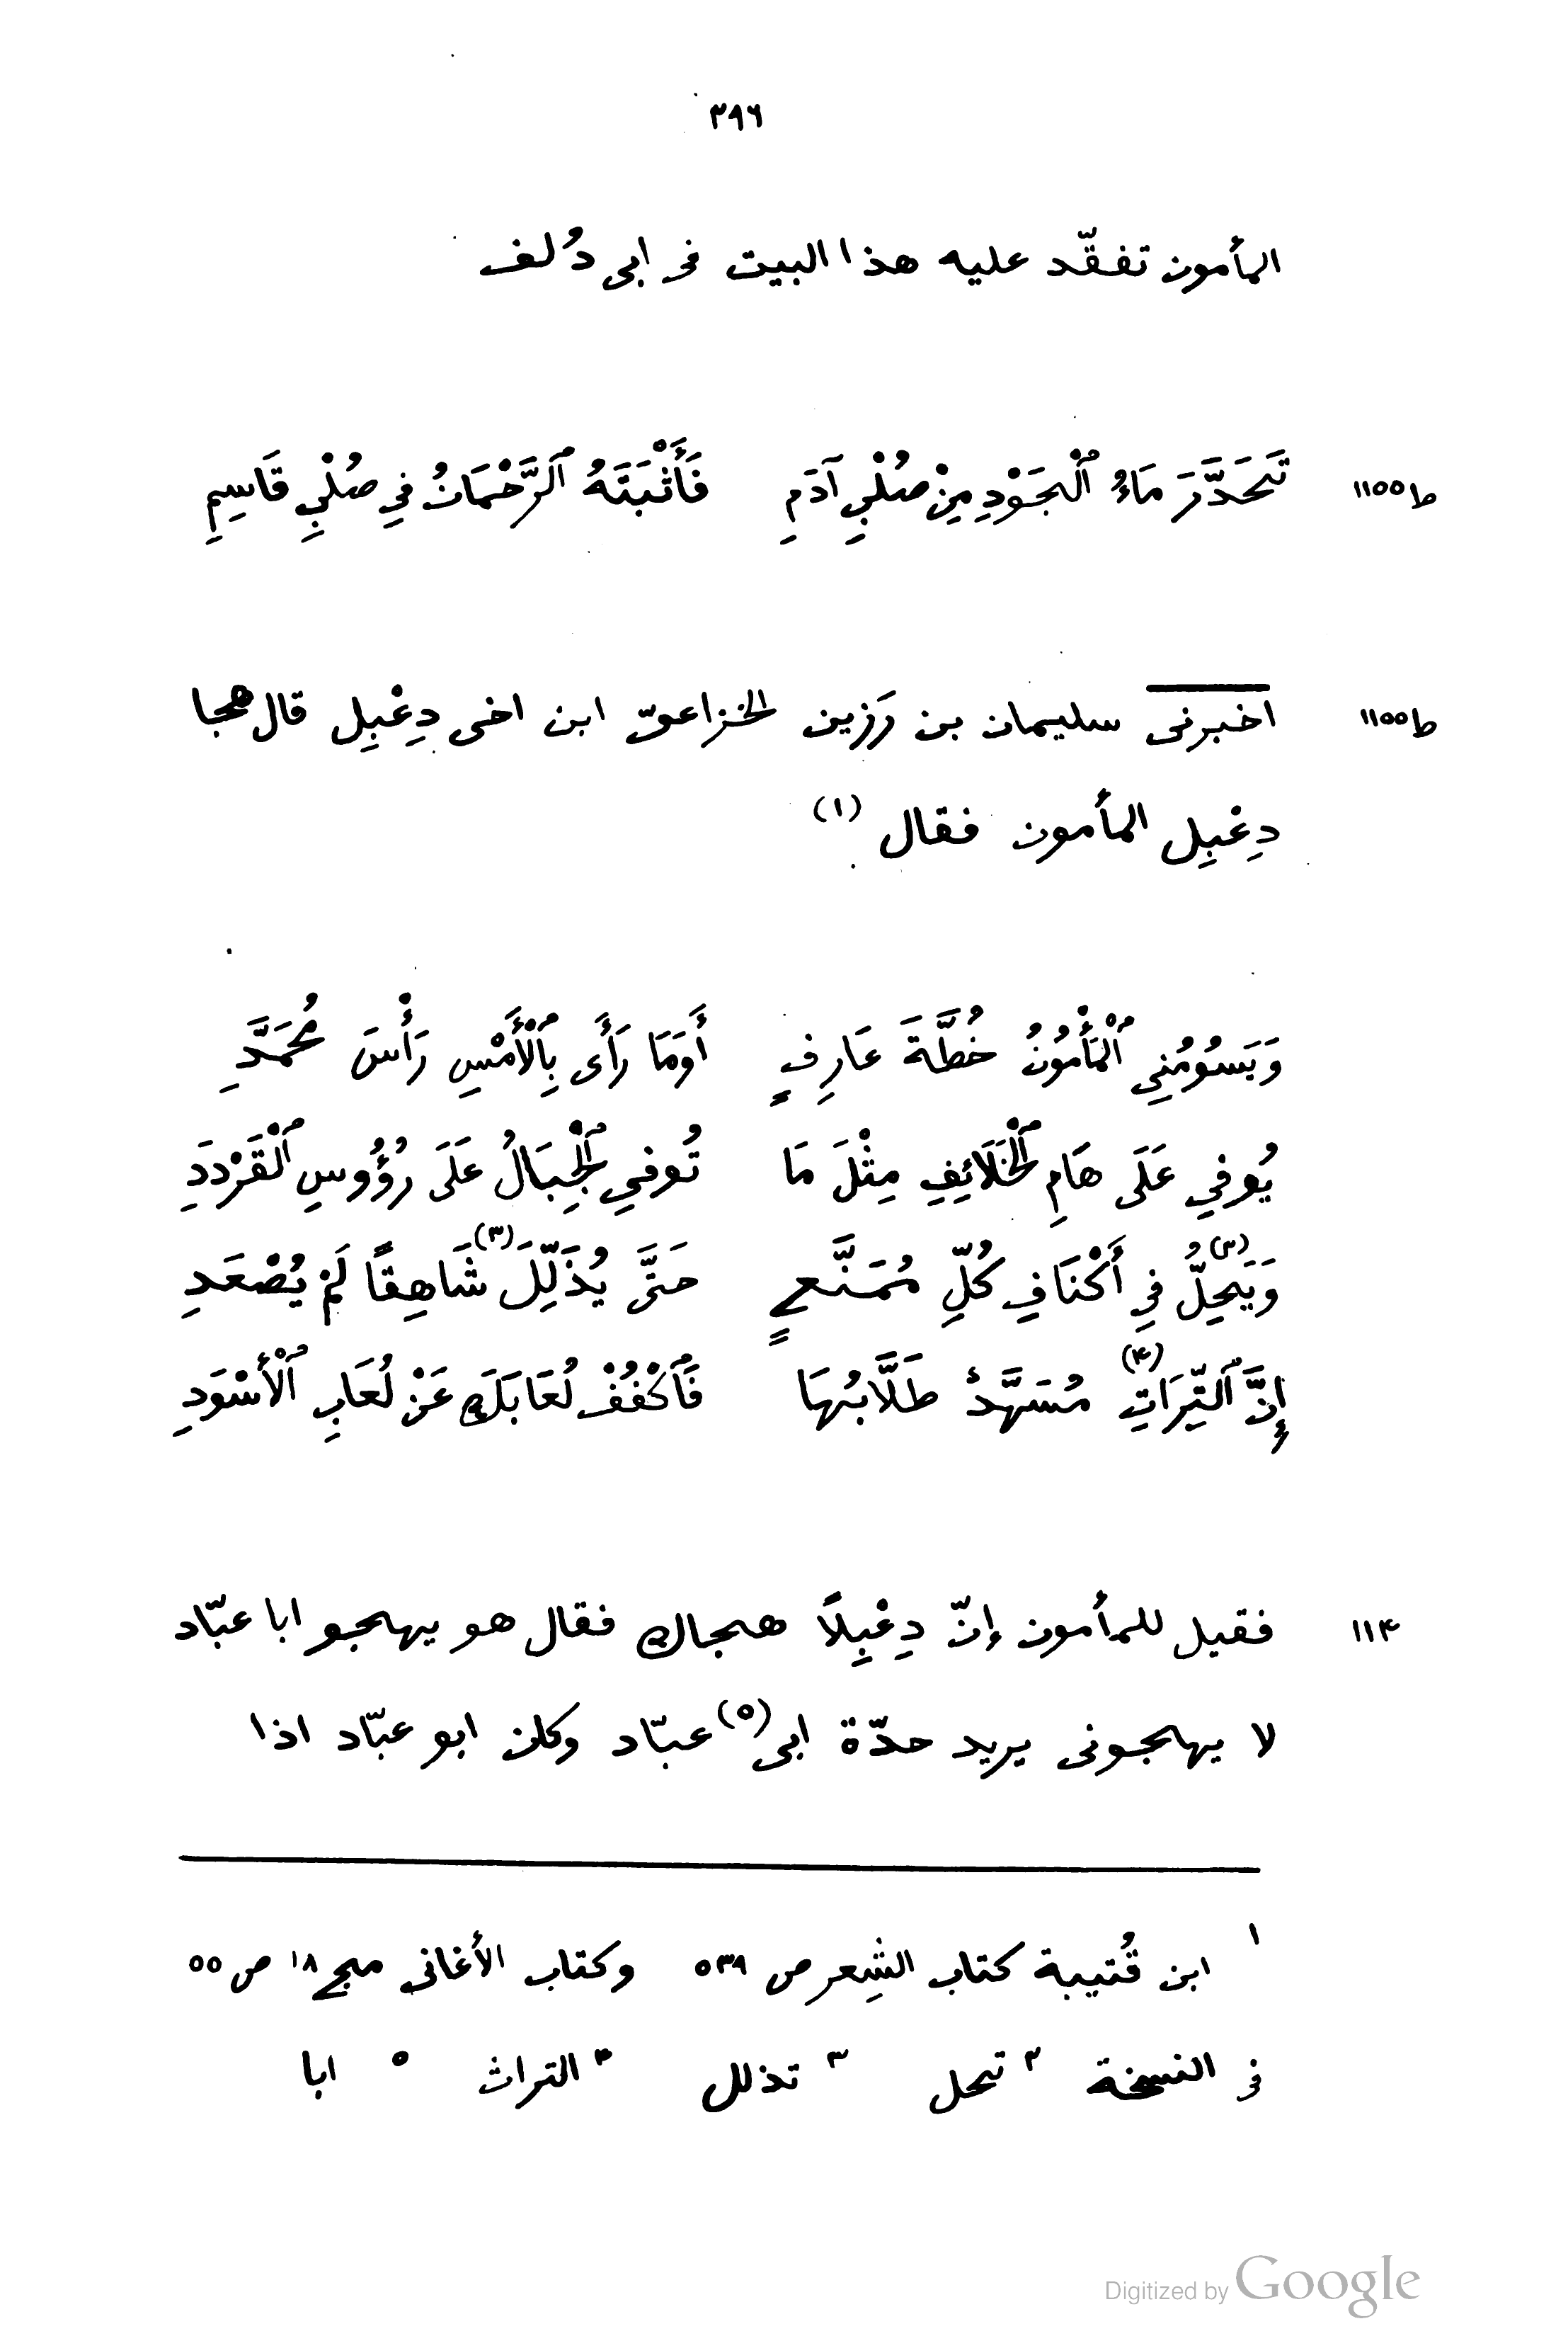 ٢٩٦
المأمون تفقّد عليه هذا البيت فى ابى دُلف
ط ١١٥٥ تَحَدَّرَ مَاءُ ٱلْجَوْدِ مِنْ صُلْبِ آدَمٍ فَأَثْبَتَهُ ٱلرَّحْمَانُ فِي صُلْبِ قَاسِمِ
ط ١١٥٥ اخبرنى سليمان بن رَزين الخزاعىّ ابن اخى دِعْبِل قال هجا
دِعْبِل المأمون فقال (١)
وَيَسُومُنِي ٱلْمَأْمُونُ خُطَّةَ عَارِفٍ أَوَمَا رَأَى بِٱلْأَمْسِ رَأْسَ مُحَمَّدِ
يُوفِي عَلَى هَامِ ٱلْخَلَائِفِ مِثْلَ مَا تُوفِي ٱلْجِبَالُ عَلَى رُؤُوسِ ٱلْقَرْدَدِ
وَيَحِلُّ (٢) فِي أَكْنَافِ كُلِّ مُمَنَّعٍ حَتَّى يُذَلِّلَ (٣) شَاهِقًا لَمْ يُصْعَدِ
إِنَّ ٱلتِّرَاتِ (٤) مُسَهَّدٌ طَلَّابُهَا فَٱكْفُفْ لُعَابَكَ عَنْ لُعَابِ ٱلْأَسْوَدِ
١١٤ فقيل للمأمون إنّ دِعْبِلًا هجاك فقال هو يهجو ابا عبّاد
لا يهجونى يريد حدّة ابى (٥) عبّاد وكان ابو عبّاد اذا
١ ابن قُتيبة كتاب الشِعر ص ٥٣٩ وكتاب الأغانى مج ١٨ ص ٥٥
فى النسخة ٢ تحل ٣ تذلل ٤ التراث ٥ ابا
Digitized by Google